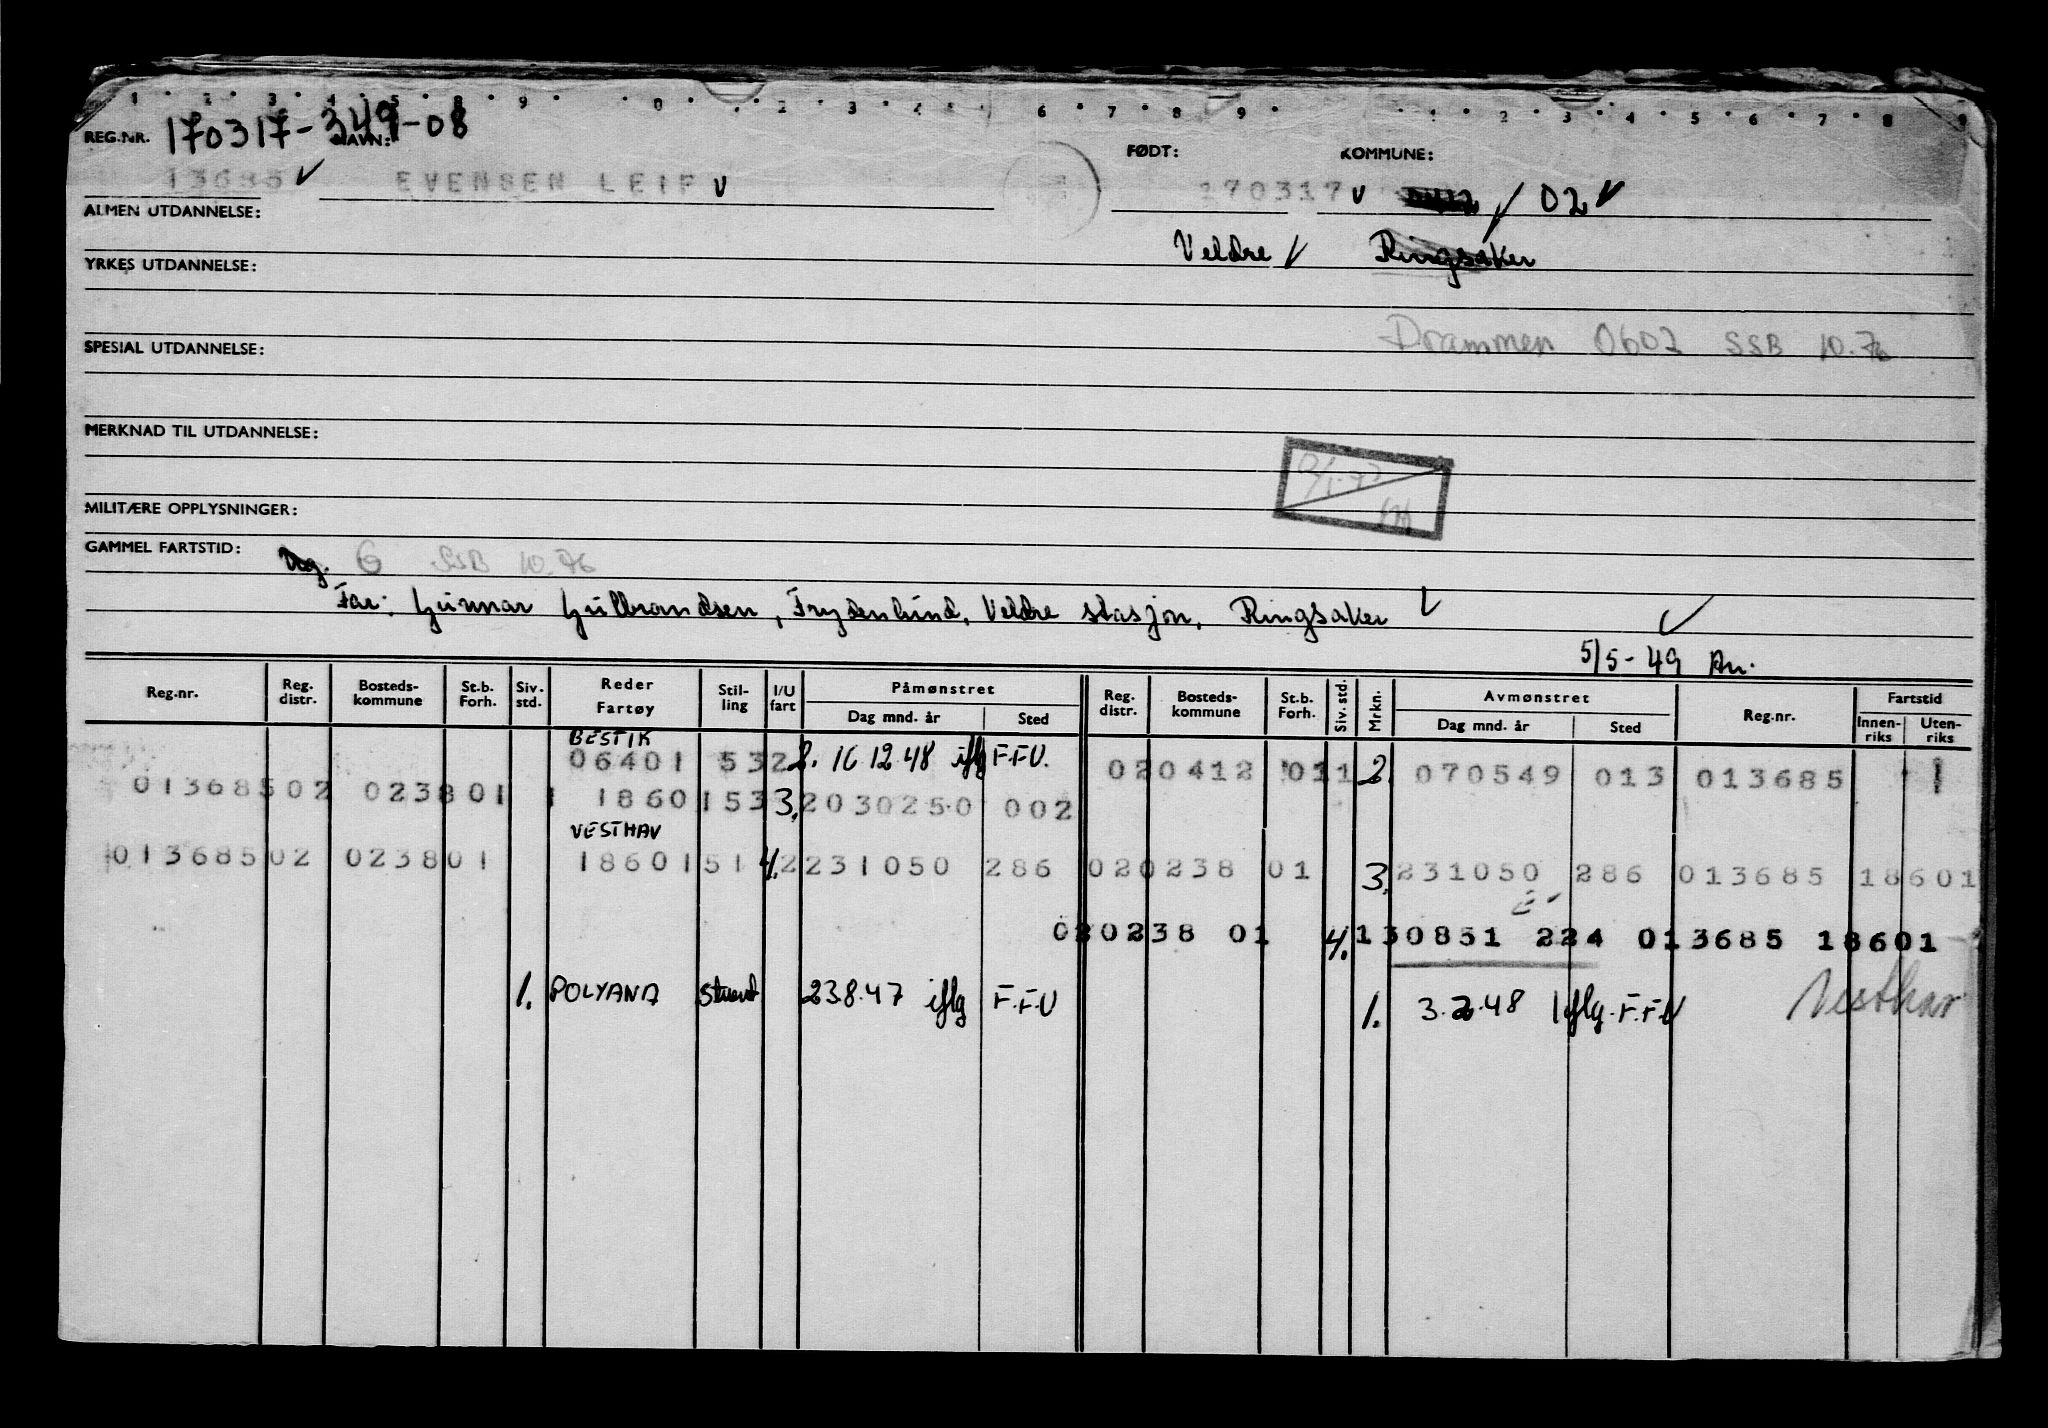 1 2 3 4 5 8 9 0 2 3 4 6 7 8 9 1 2 3 4 5 6 7 8 9
REG.NR. 170317-349-08 NAVN: FØDT: KOMMUNE:
13685 EVENSEN LEIF 170317 02
ALMEN UTDANNELSE:
Veldre Ringsaker
YRKES UTDANNELSE:
Drammen 0602 SSB 10.76
SPESIAL UTDANNELSE:
MERKNAD TIL UTDANNELSE:
MILITÆRE OPPLYSNINGER:
GAMMEL FARTSTID: G SSB 10.76
Far: Gunnar Gulbrandsen, Frydenlund, Veldre stasjon, Ringsaker
5/5-49 An.
Reg.nr. Reg. distr. Bosteds- kommune St.b. Forh. Siv. std. Reder Fartøy Stil- ling I/U fart Påmønstret Dag mnd. år Sted Reg. distr. Bosteds- kommune St.b. Forh. Siv. std. Mrkn. Avmønstret Dag mnd. år Sted Reg.nr. Fartstid Innen- riks Uten- riks
BESTIK
06401 532 2. 16 12.48 iflg F.F.V. 020412 011 2. 070549 013 013685 1
01368502 023801 1 18601533 3. 2030250 002
VESTHAV
01368502 023801 18601 51 4. 2 231050 286 020238 01 3. 231050 286 013685 18601
020238 01 4. 130851 224 013685 18601
1. POLYANA stuert 23.8.47 iflg F.F.V 1. 3.2.48 iflg. F.F.V Vesthav